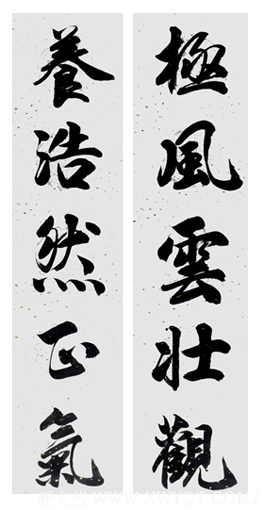 極風雲壯觀
養浩然正氣